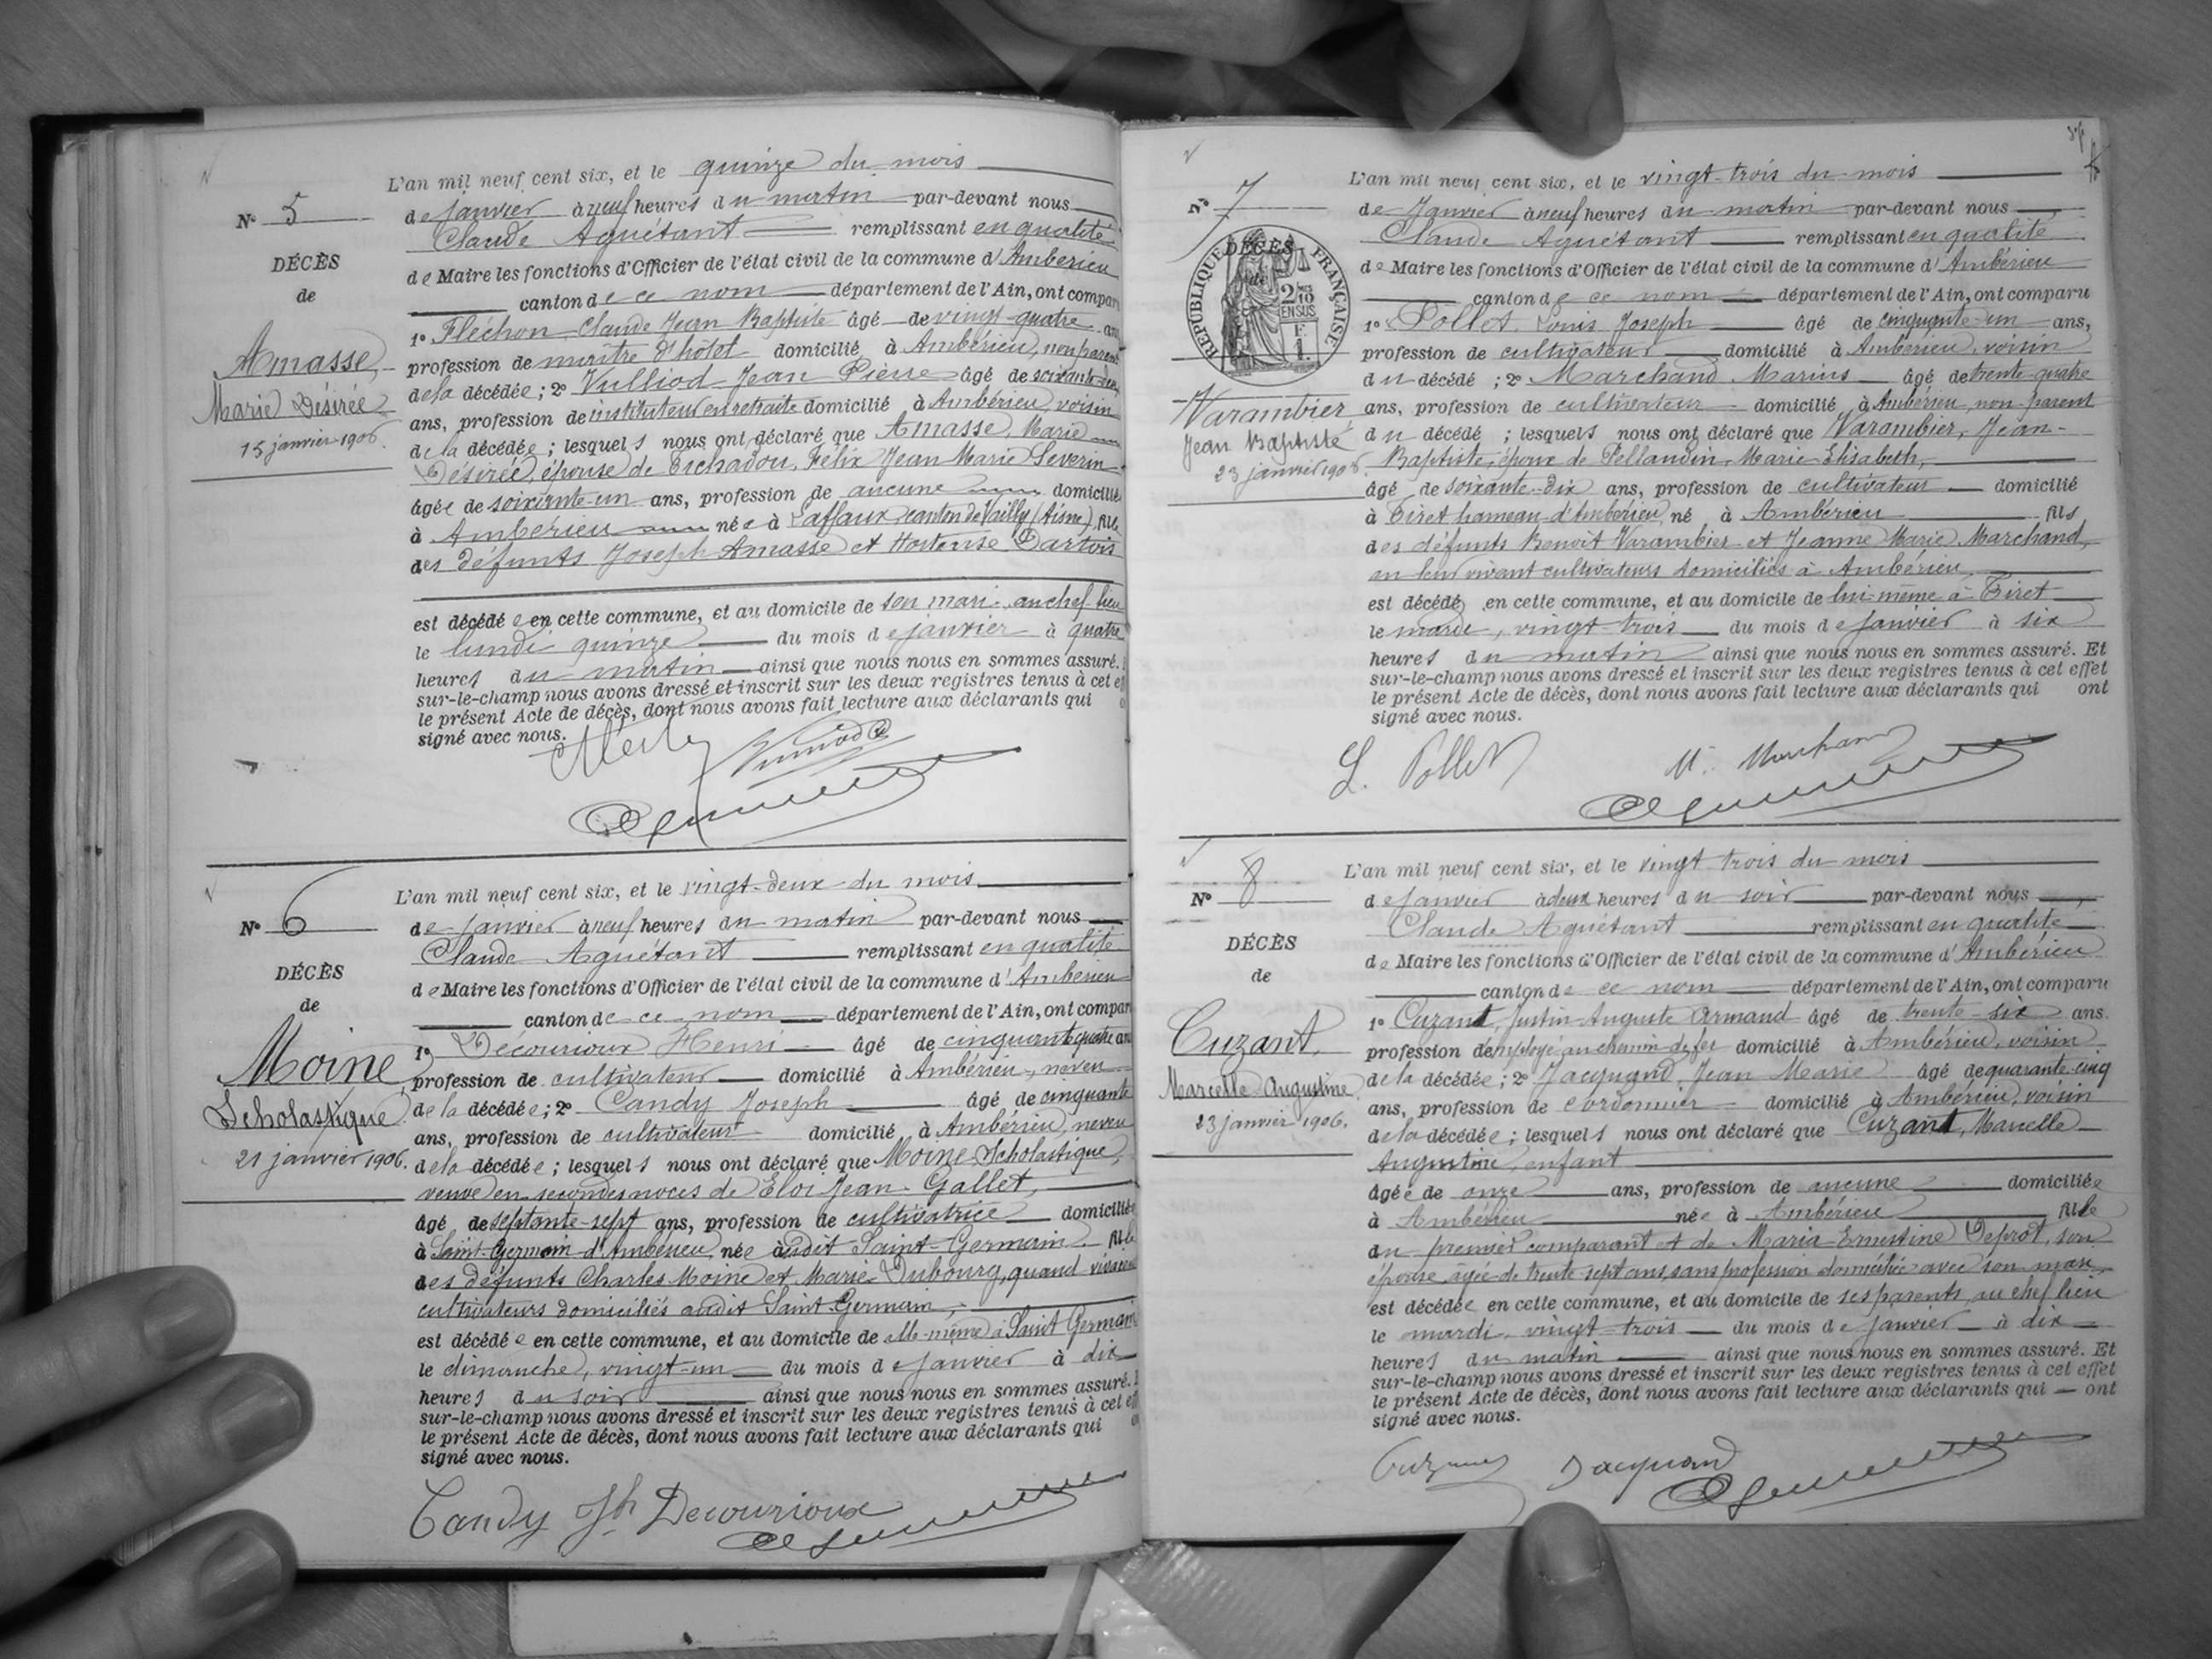 L'an mil neuf cent six, et le quinze du mois
N° 5
de janvier à neuf heures du matin par-devant nous
Claude Aguétant remplissant en qualité
DÉCÈS
de Maire les fonctions d'Officier de l'état civil de la commune d'Ambérieu
de
canton de ce nom département de l'Ain, ont compar
1° Fléchon Claude Jean Baptiste âgé de vingt-quatre an
Amasse,
profession de maître d'hôtel domicilié à Ambérieu, non parent
Marie Désirée
de la décédée ; 2° Vulliod Jean Pierre âgé de soixante-deux
15 janvier 1906.
ans, profession de instituteur en retraite domicilié à Ambérieu, voisin
de la décédée ; lesquels nous ont déclaré que Amasse, Marie
Désirée, épouse de Félix Jean Marie Séverin
âgée de soixante-un ans, profession de aucune domiciliée
à Ambérieu née à Laffaux canton de Vailly (Aisne) fille
des défunts Joseph Amasse et Hortense Dartois
est décédée en cette commune, et au domicile de son mari au chef-lieu
le lundi quinze du mois de janvier à quatre
heures du matin ainsi que nous nous en sommes assuré.
sur-le-champ nous avons dressé et inscrit sur les deux registres tenus à cet e
le présent Acte de décès, dont nous avons fait lecture aux déclarants qui
signé avec nous.
L'an mil neuf cent six, et le vingt-deux du mois
N° 6
de janvier à neuf heures du matin par-devant nous
Claude Aguétant remplissant en qualité
DÉCÈS
de Maire les fonctions d'Officier de l'état civil de la commune d'Ambérieu
de
canton de ce nom département de l'Ain, ont compar
Moine
1° Décourioux Henri âgé de cinquante-quatre an
profession de cultivateur domicilié à Ambérieu, neveu
Scholastique
de la décédée ; 2° Candy Joseph âgé de cinquante
ans, profession de cultivateur domicilié à Ambérieu, neveu
21 janvier 1906.
de la décédée ; lesquels nous ont déclaré que Moine Scholastique,
veuve en secondes noces de Éloi Jean Gallet,
âgé de septante-sept ans, profession de cultivatrice domiciliée
à Saint-Germain d'Ambérieu, née audit Saint-Germain fille
des défunts Charles Moine et Marie Dubourg, quand vivaient
cultivateurs domiciliés audit Saint-Germain,
est décédée en cette commune, et au domicile de elle-même à Saint Germain
le dimanche, vingt-un du mois de janvier à dix
heures du soir ainsi que nous nous en sommes assuré.
sur-le-champ nous avons dressé et inscrit sur les deux registres tenus à cet ef
le présent Acte de décès, dont nous avons fait lecture aux déclarants qui
signé avec nous.
Candy Jh Decourioux
L'an mil neuf cent six, et le vingt-trois du mois
N° 7
de Janvier à neuf heures du matin par-devant nous
Claude Aguétant remplissant en qualité
RÉPUBLIQUE FRANÇAISE
DÉCÈS
de
2/10 EN SUS
F. 1.
de Maire les fonctions d'Officier de l'état civil de la commune d'Ambérieu
canton de ce nom département de l'Ain, ont comparu
1° Pollet Louis Joseph âgé de cinquante-un ans,
profession de cultivateur domicilié à Ambérieu, voisin
du décédé ; 2° Marchand Marius âgé de trente-quatre
Varambier
ans, profession de cultivateur domicilié à Ambérieu, non parent
Jean Baptiste
du décédé ; lesquels nous ont déclaré que Varambier, Jean-
23 janvier 1906.
Baptiste, époux de Pellandin, Marie Elisabeth,
âgé de soixante-dix ans, profession de cultivateur domicilié
à Tiret hameau d'Ambérieu, né à Ambérieu fils
des défunts Benoit Varambier et Jeanne Marie Marchand,
en leur vivant cultivateurs domiciliés à Ambérieu,
est décédé en cette commune, et au domicile de lui-même à Tiret
le mardi, vingt-trois du mois de janvier à six
heures du matin ainsi que nous nous en sommes assuré. Et
sur-le-champ nous avons dressé et inscrit sur les deux registres tenus à cet effet
le présent Acte de décès, dont nous avons fait lecture aux déclarants qui ont
signé avec nous.
L. Pollet M. Marchand
L'an mil neuf cent six, et le vingt trois du mois
N° 8
de janvier à deux heures du soir par-devant nous
Claude Aguétant remplissant en qualité
DÉCÈS
de Maire les fonctions d'Officier de l'état civil de la commune d'Ambérieu
de
canton de ce nom département de l'Ain, ont comparu
1° Cuzant, Justin Auguste Armand âgé de trente-six ans.
Cuzant,
profession d'employé au chemin de fer domicilié à Ambérieu, voisin
Marcelle Augustine
de la décédée ; 2° Jacquand, Jean Marie âgé de quarante-cinq
ans, profession de cordonnier domicilié à Ambérieu, voisin
23 janvier 1906.
de la décédée ; lesquels nous ont déclaré que Cuzant, Marcelle
Augustine, enfant
âgée de onze ans, profession de aucune domiciliée
à Ambérieu née à Ambérieu fille
du premier comparant et de Maria Ernestine Deprot, son
épouse, âgée de trente-sept ans, sans profession domiciliée avec son mari,
est décédée en cette commune, et au domicile de ses parents, au chef lieu
le mardi, vingt-trois du mois de janvier à dix
heures du matin ainsi que nous nous en sommes assuré. Et
sur-le-champ nous avons dressé et inscrit sur les deux registres tenus à cet effet
le présent Acte de décès, dont nous avons fait lecture aux déclarants qui ont
signé avec nous.
Cuzant Jacquand